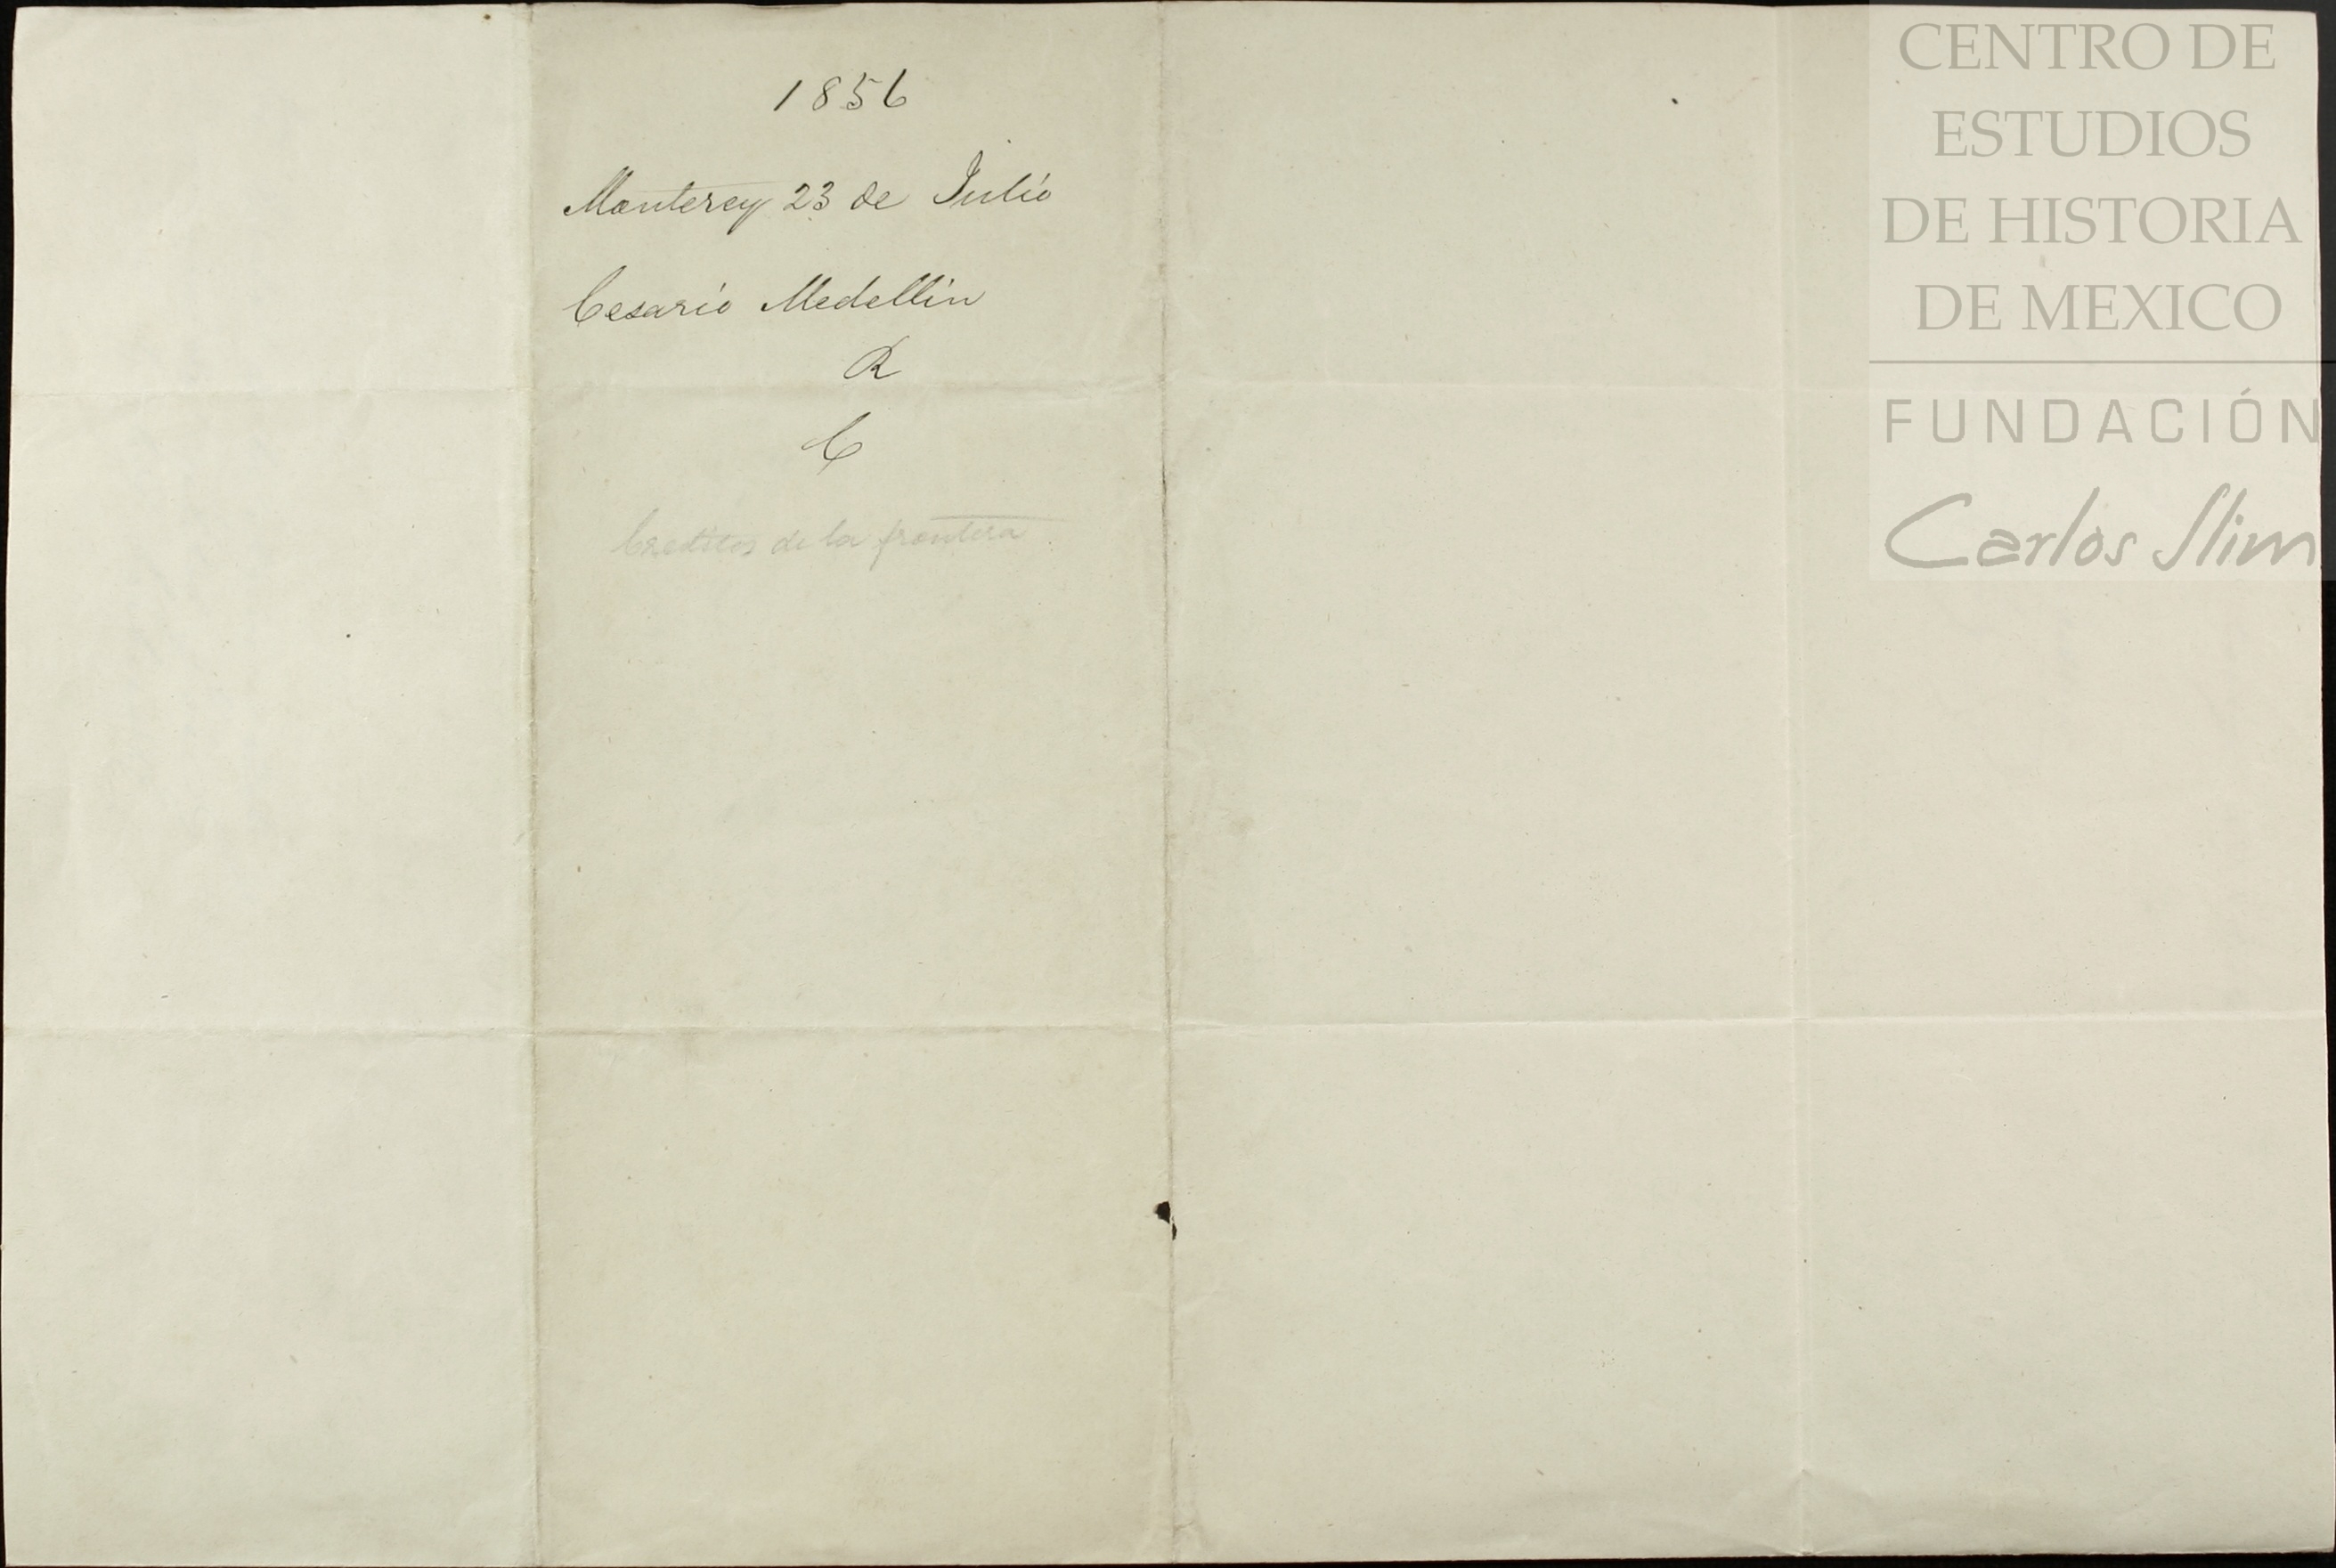 1856
Monterey 23 de Julio
Cesario Medellin
R
C
Creditos de la frontera
CENTRO DE
ESTUDIOS
DE HISTORIA
DE MEXICO
FUNDACIÓN
Carlos Slim